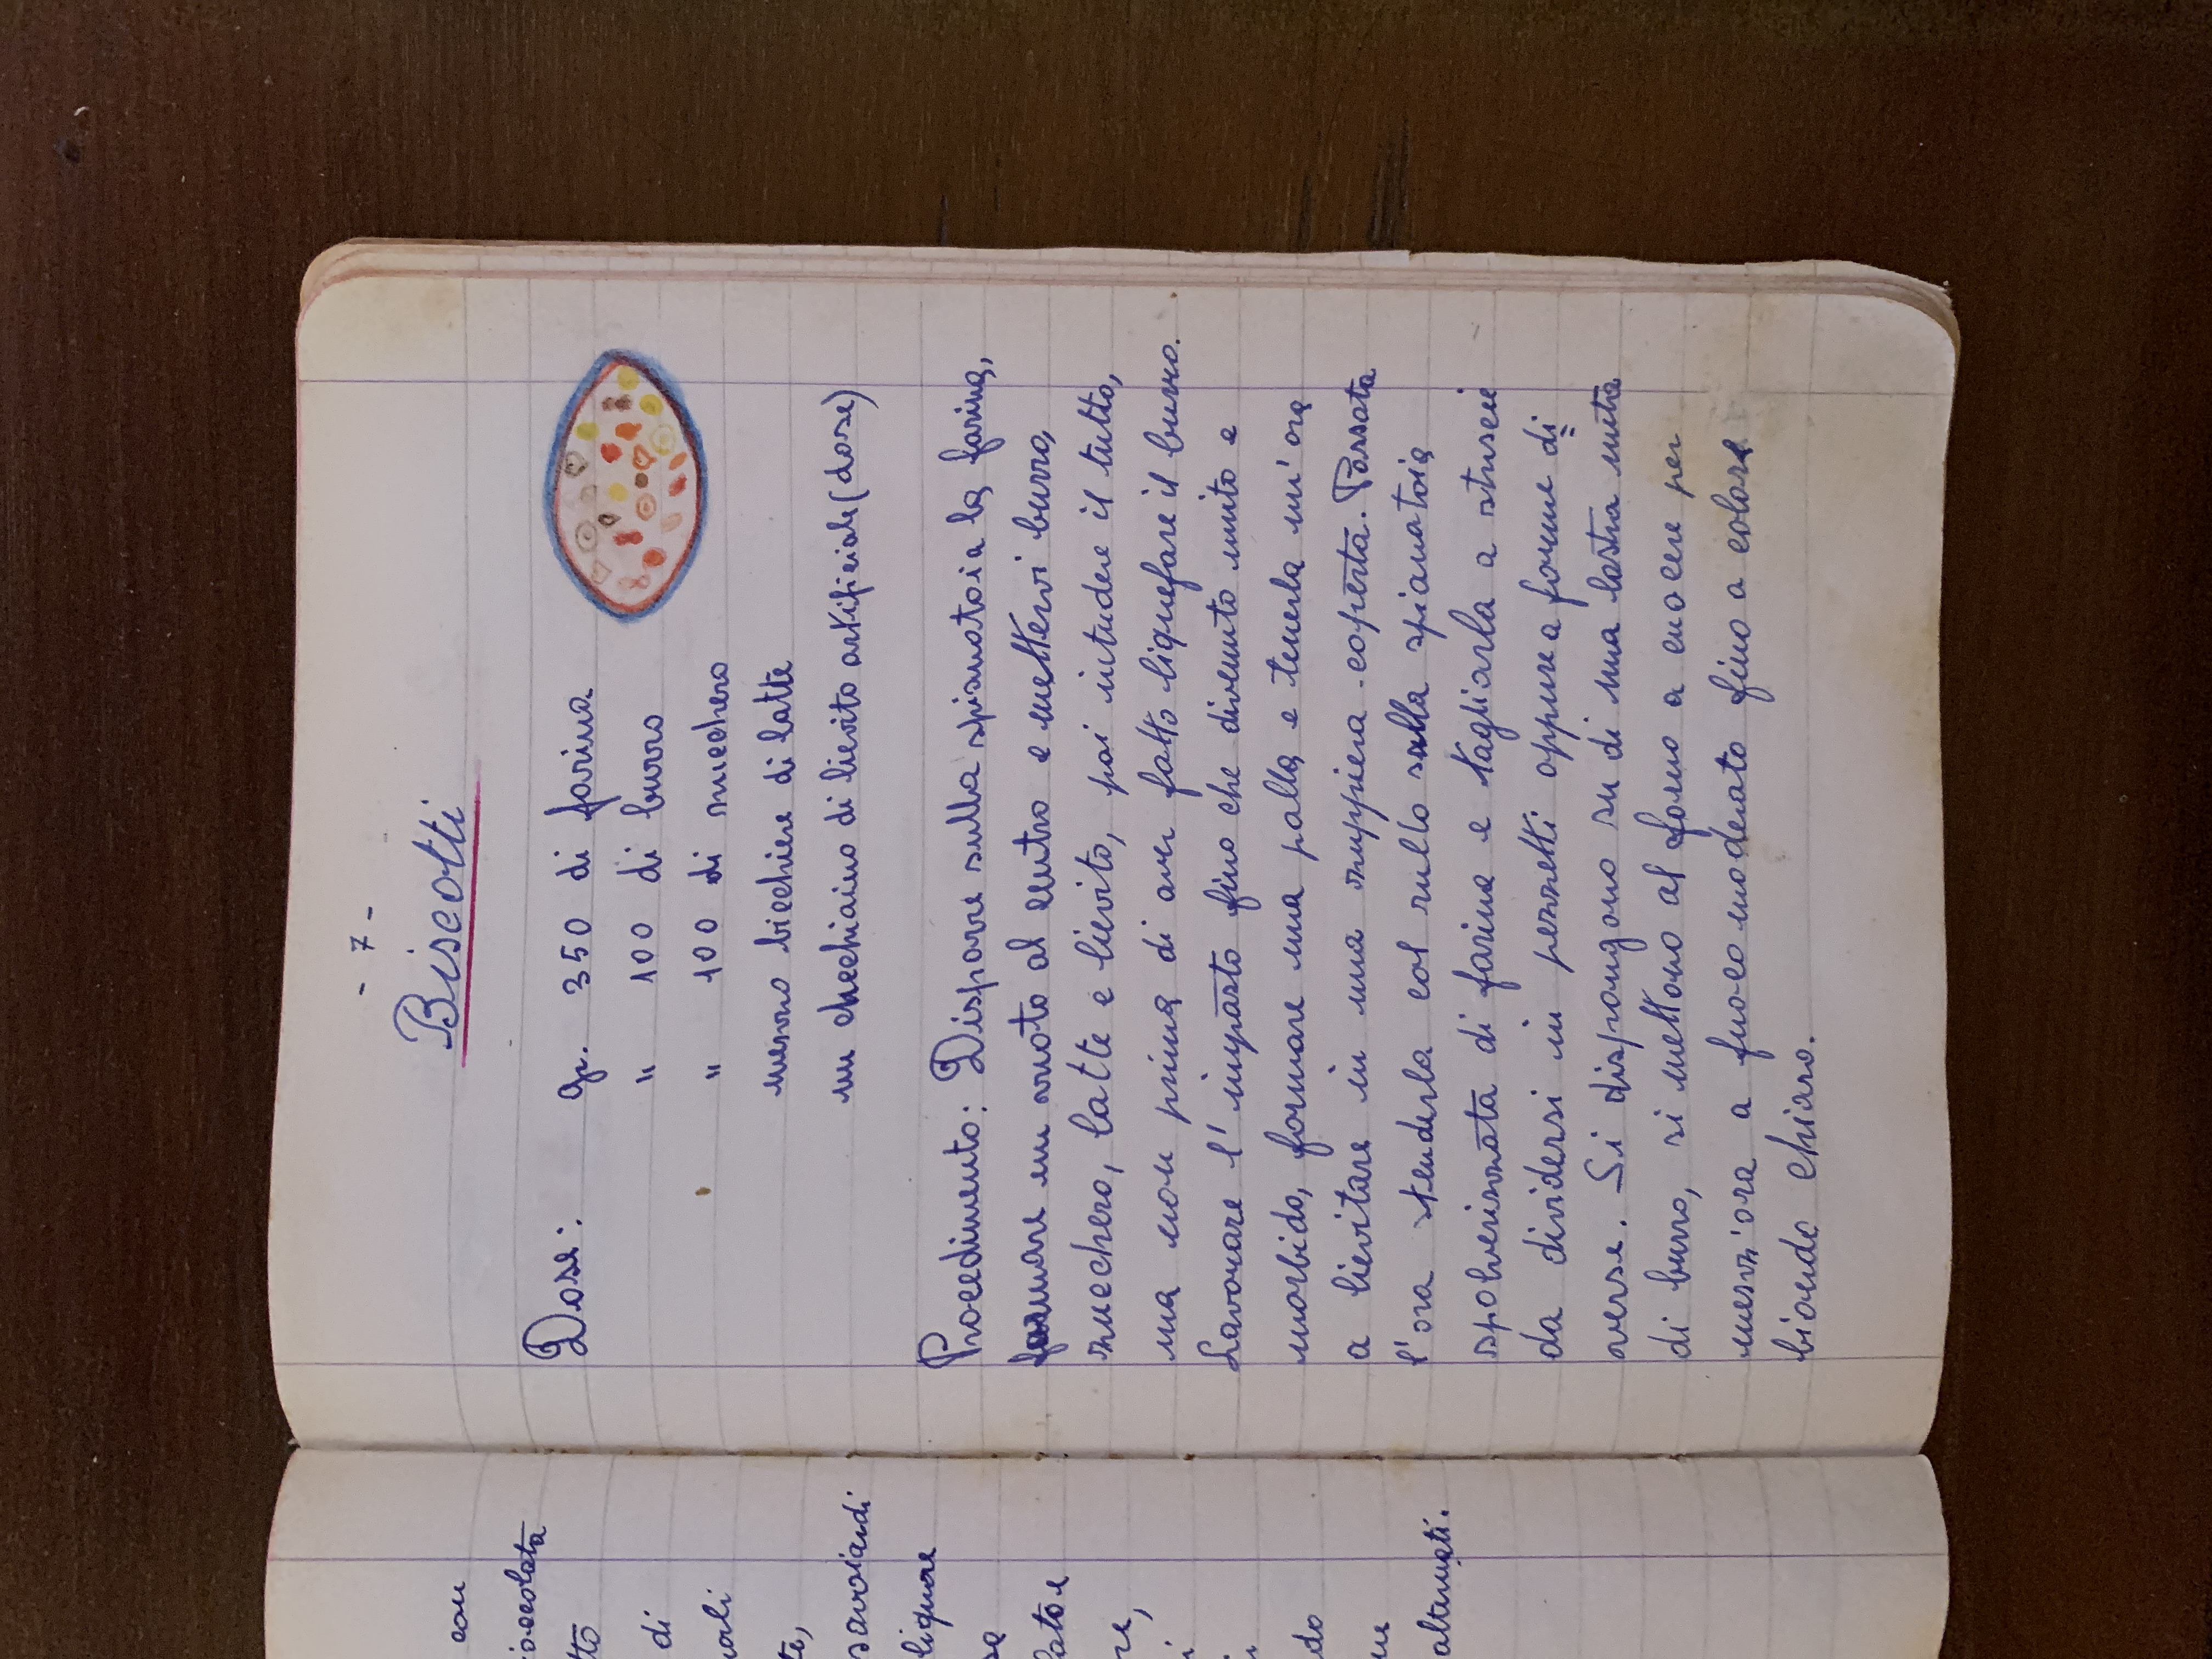 con
ioccolata
tto
di
uali
te,
savoiardi
liquore
sa
lato e
re,
i
i
do
ne
alternati.
- 7 -
Biscotti
Dose: gr. 350 di farina
" 100 di burro
" 100 di zucchero
mezzo bicchiere di latte
un chcchiaino di lievito artificiale (dose)
Procedimento: Disporre sulla spianatoia la farina,
formare un vuoto al centro e mettervi burro,
zucchero, latte e lievito, poi intudere il tutto,
ma non prima di aver fatto liquefare il burro.
Lavorare l'impasto fino che divenuto unito e
morbido, formare una palla e tenerla un'ora
a lievitare in una zuppiera coperta. Passata
l'ora stenderla col rullo sulla spianatoia
spolverizzata di farina e tagliarla a striscie
da dividersi in pezzetti oppure a forme di=
verse. Si dispongono su di una lastra unta
di burro, si mettono al forno a cuocere per
mezz'ora a fuoco moderato fino a colore
biondo chiaro.